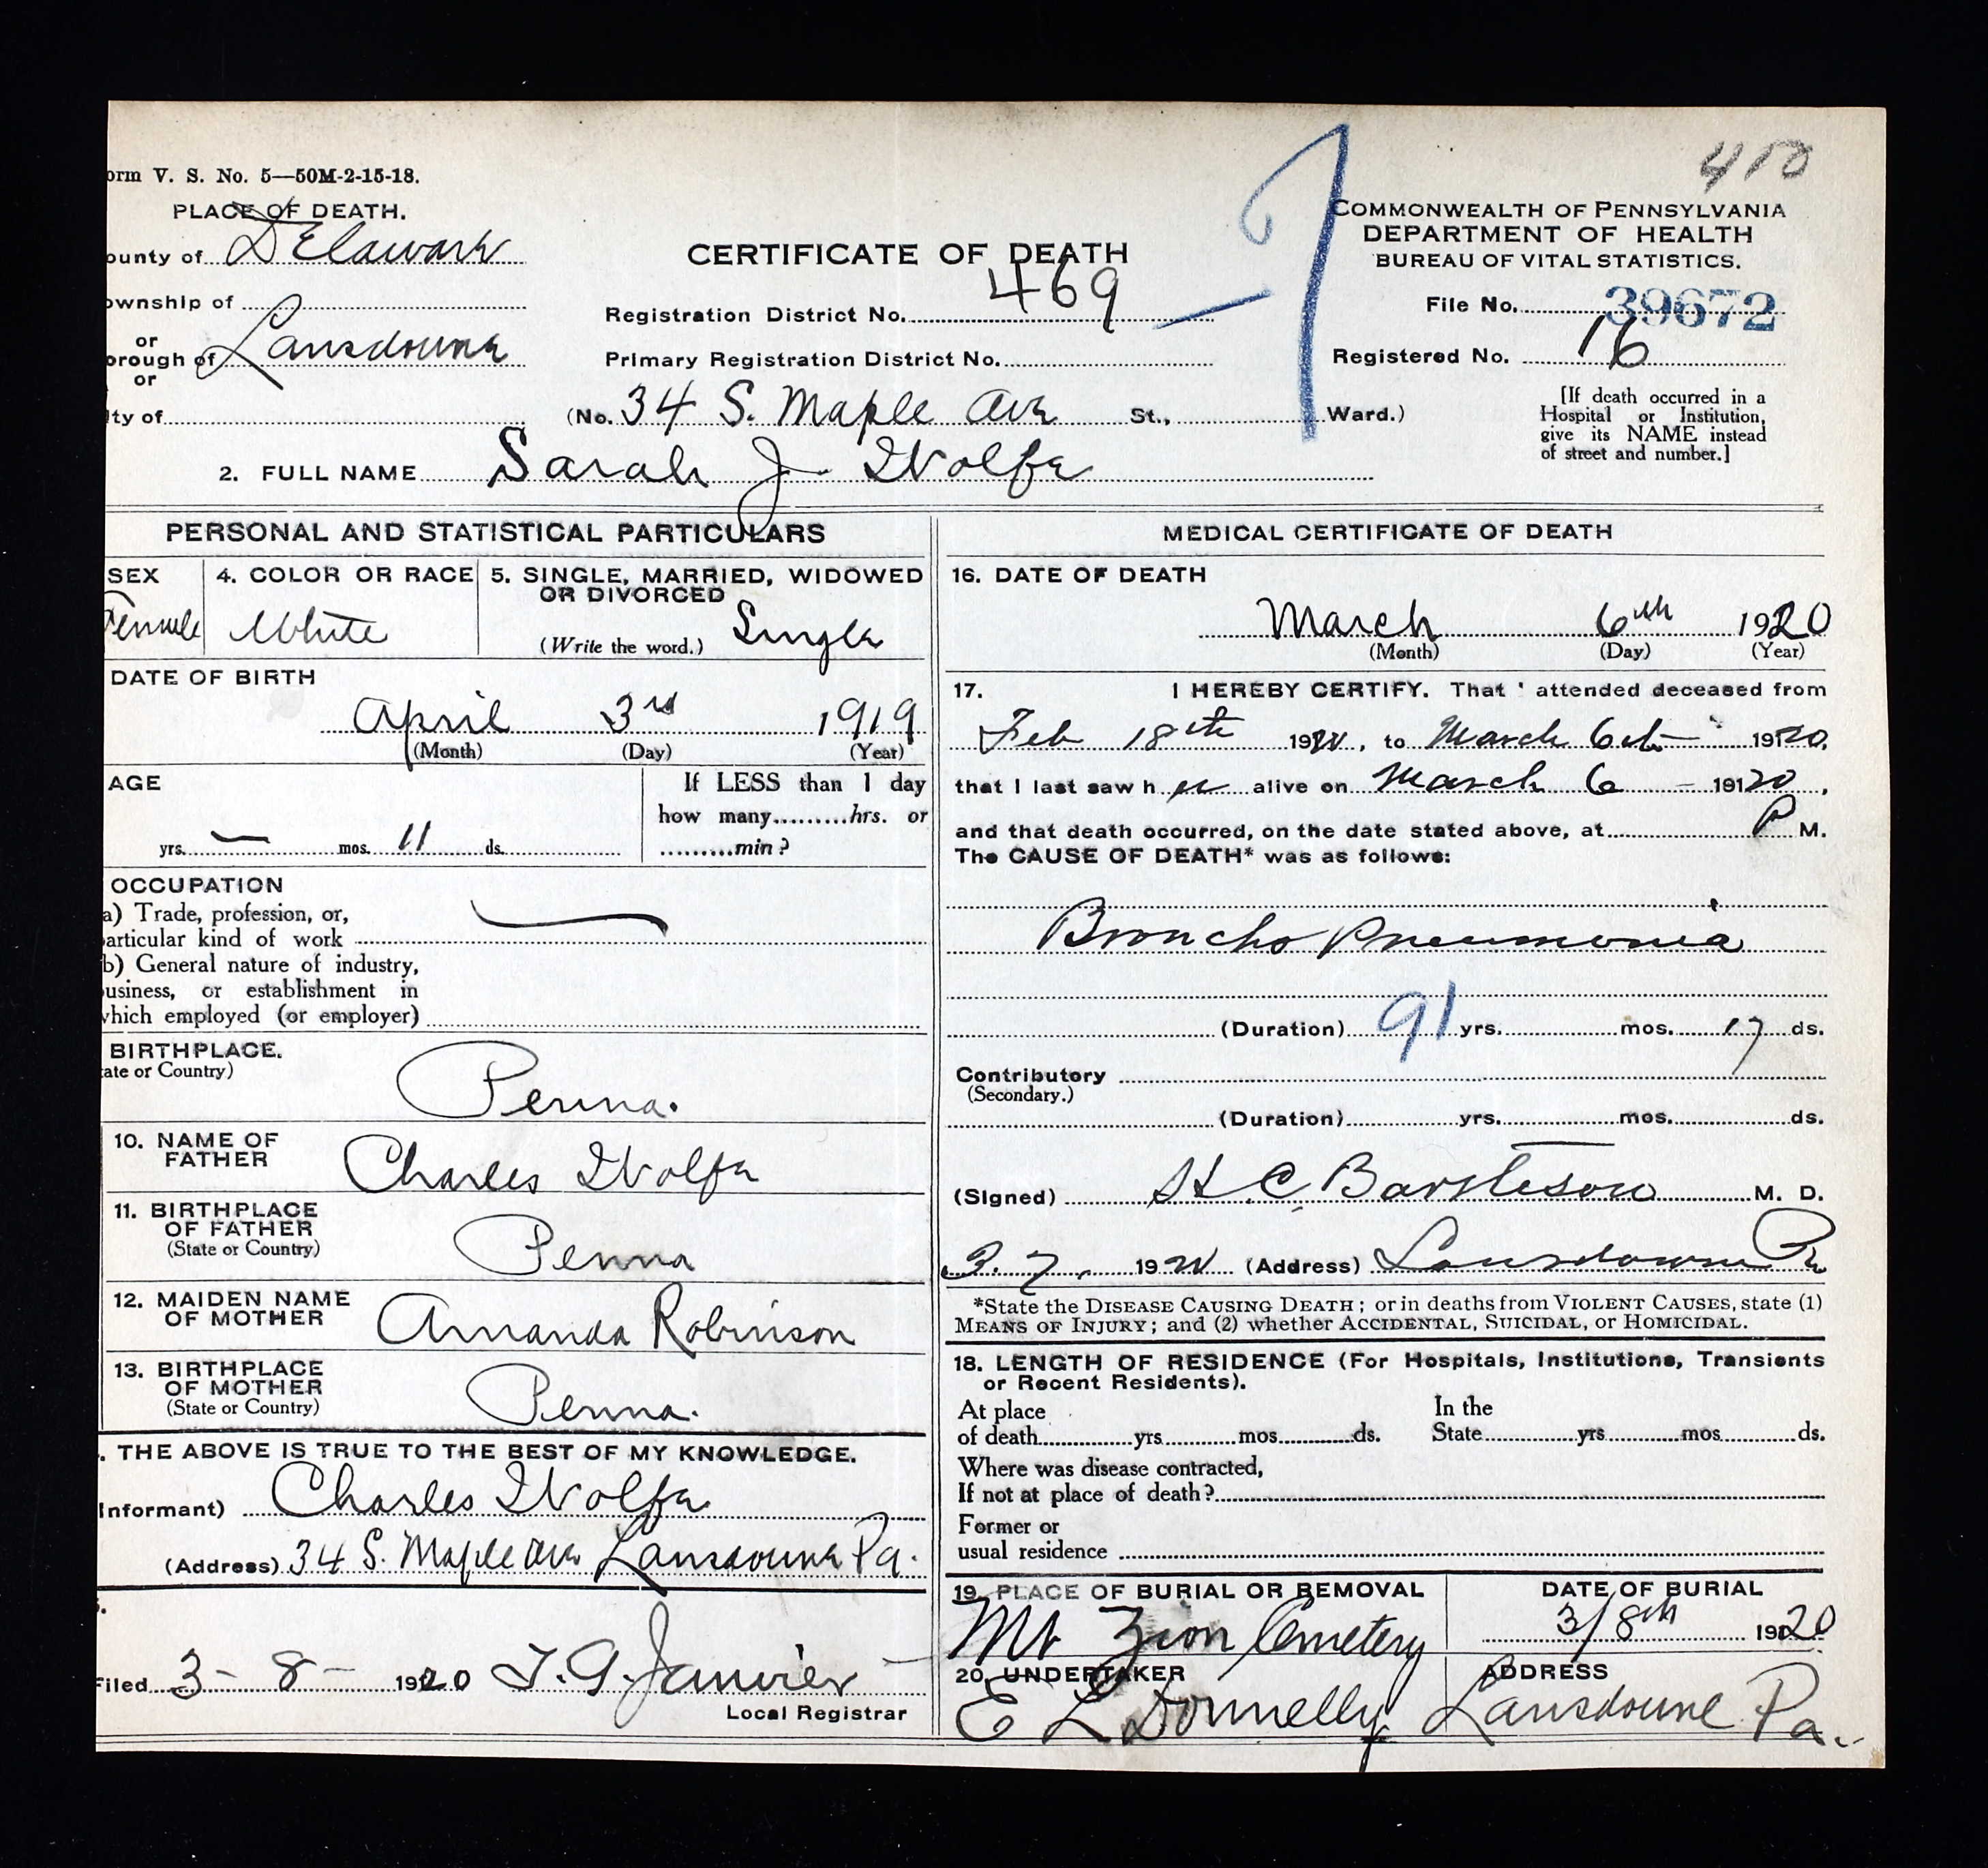 orm V. S. No. 5—50M-2-15-18.
410
PLACE OF DEATH.
ounty of Delaware
ownship of
or
orough of Lansdowne
or
ity of
CERTIFICATE OF DEATH
Registration District No. 469
Primary Registration District No.
(No. 34 S. Maple Ave St., Ward.)
COMMONWEALTH OF PENNSYLVANIA
DEPARTMENT OF HEALTH
BUREAU OF VITAL STATISTICS.
File No. 39672
Registered No. 16
[If death occurred in a
Hospital or Institution,
give its NAME instead
of street and number.]
2. FULL NAME Sarah J. Wolfe
PERSONAL AND STATISTICAL PARTICULARS
SEX
Female
4. COLOR OR RACE
White
5. SINGLE, MARRIED, WIDOWED
OR DIVORCED
(Write the word.) Single
DATE OF BIRTH
April 3rd 1919
(Month) (Day) (Year)
AGE
yrs. — mos. 11 ds.
If LESS than 1 day
how many hrs. or
min?
OCCUPATION
a) Trade, profession, or,
articular kind of work —
b) General nature of industry,
usiness, or establishment in
which employed (or employer)
BIRTHPLACE.
ate or Country)
Penna.
10. NAME OF
FATHER
Charles Wolfe
11. BIRTHPLACE
OF FATHER
(State or Country)
Penna
12. MAIDEN NAME
OF MOTHER
Amanda Robinson
13. BIRTHPLACE
OF MOTHER
(State or Country)
Penna.
. THE ABOVE IS TRUE TO THE BEST OF MY KNOWLEDGE.
Informant) Charles Wolfe
(Address) 34 S. Maple Ave Lansdowne Pa.
Filed 3-8-1920 T. G. Janvier
Local Registrar
MEDICAL CERTIFICATE OF DEATH
16. DATE OF DEATH
March 6th 1920
(Month) (Day) (Year)
17. I HEREBY CERTIFY. That ' attended deceased from
Feb 18th 1920, to March 6th 1920,
that I last saw h er alive on March 6 1920,
and that death occurred, on the date stated above, at P M.
The CAUSE OF DEATH* was as follows:
Broncho Pneumonia
91
(Duration) yrs. mos. 17 ds.
Contributory
(Secondary.)
(Duration) yrs. mos. ds.
(Signed) H. C. Bartleson M. D.
3. 7. 1920 (Address) Lansdowne Pa
*State the DISEASE CAUSING DEATH; or in deaths from VIOLENT CAUSES, state (1)
MEANS OF INJURY; and (2) whether ACCIDENTAL, SUICIDAL, or HOMICIDAL.
18. LENGTH OF RESIDENCE (For Hospitals, Institutions, Transients
or Recent Residents).
At place
of death yrs mos ds.
In the
State yrs mos ds.
Where was disease contracted,
If not at place of death?
Former or
usual residence
19. PLACE OF BURIAL OR REMOVAL
Mt Zion Cemetery
DATE OF BURIAL
3/8th 1920
20. UNDERTAKER
E L Donnelly
ADDRESS
Lansdowne Pa.